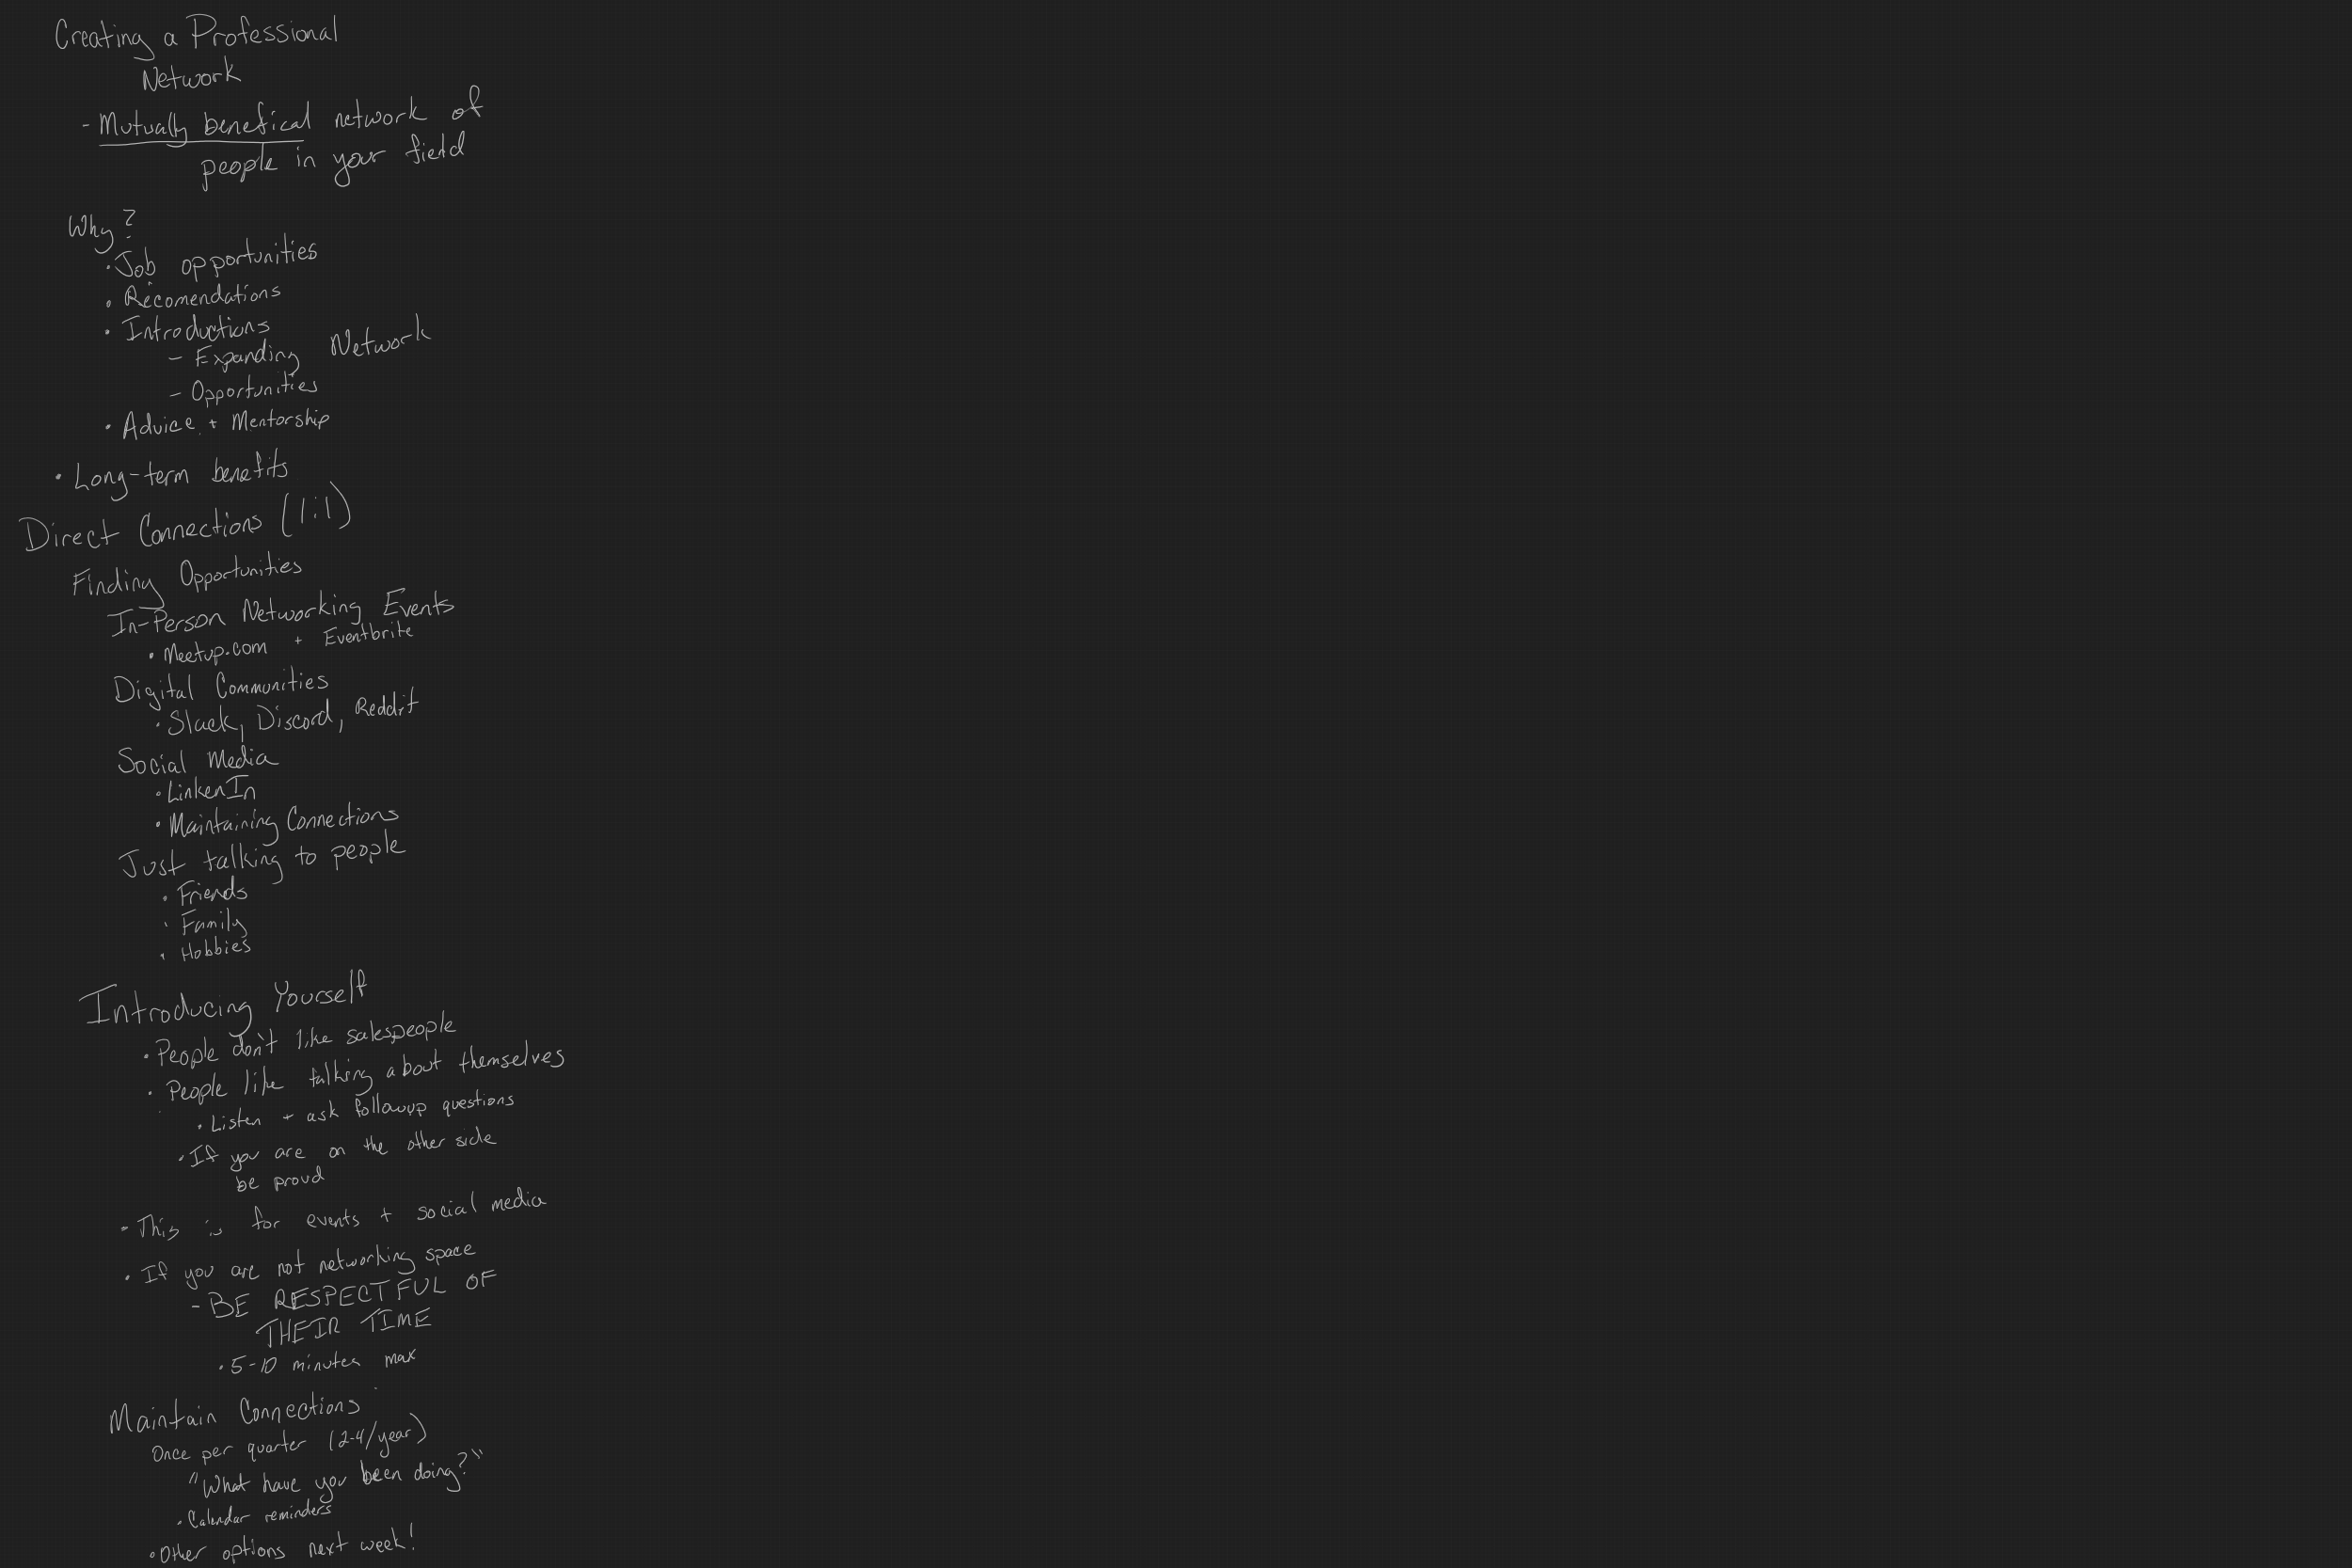 Creating a Professional
Network
- Mutually benefical network of
people in your field
Why?
• Job opportunities
• Recomendations
• Introductions
- Expanding Network
- Opportunities
• Advice + Mentorship
• Long-term benefits
Direct Connections (1:1)
Finding Opportunities
In-Person Networking Events
• Meetup.com + Eventbrite
Digital Communities
• Slack, Discord, Reddit
Social Media
• LinkenIn
• Maintaining Connections
Just talking to people
• Friends
• Family
• Hobbies
Introducing Yourself
• People don't like salespeople
• People like talking about themselves
• Listen + ask followup questions
• If you are on the other side
be proud
• This is for events + social media
• If you are not networking space
- BE RESPECTFUL OF
THEIR TIME
• 5-10 minutes max
Maintain Connections
Once per quarter (2-4/year)
"What have you been doing?"
• Calendar reminders
• Other options next week!